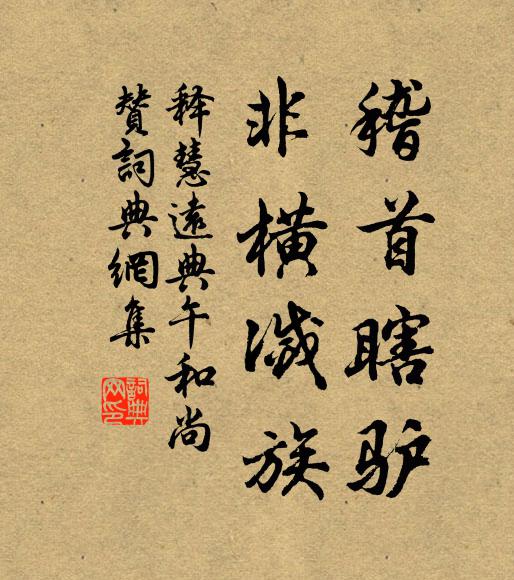 稽首瞎驴
非横滅族
释慧遠典午和尚
赞詞典網集
詞典网印